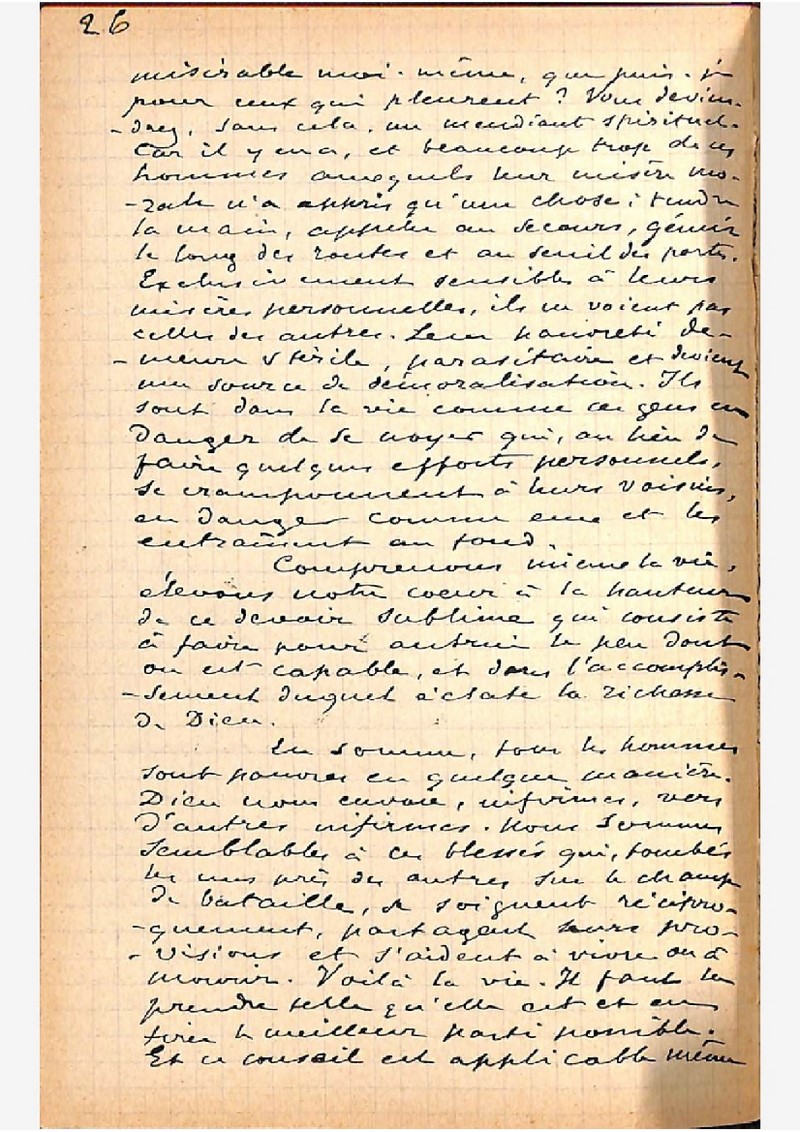 26
misérable moi-même, que puis-je
pour ceux qui pleurent? Vous devien-
-drez, sans cela, un mendiant spirituel.
Car il y en a, et beaucoup trop de ces
hommes auxquels leur misère mo-
-rale n'a appris qu'une chose: tendre
la main, appeler au secours, gémir
le long des routes et au seuil des portes.
Exclusivement sensibles à leurs
misères personnelles, ils ne voient pas
celles des autres. Leur pauvreté de-
-meure stérile, parasitaire et devient
une source de démoralisation. Ils
sont dans la vie comme ces gens en
danger de se noyer qui, au lieu de
faire quelques efforts personnels,
se cramponnent à leurs voisins,
en danger comme eux et les
entraînent au fond.
Comprenons mieux la vie,
élevons notre coeur à la hauteur
de ce devoir sublime qui consiste
à faire pour autrui le peu dont
on est capable, et dans l'accomplis-
-sement duquel éclate la richesse
de Dieu.
En somme, tous les hommes
sont pauvres en quelque manière.
Dieu nous envoie, infirmes, vers
d'autres infirmes. Nous sommes
semblables à ces blessés qui, tombés
les uns près des autres sur le champ
de bataille, se soignent récipro-
-quement, partagent leurs pro-
-visions et s'aident à vivre ou à
mourir. Voilà la vie. Il faut la
prendre telle qu'elle est et en
tirer le meilleur parti possible.
Et ce conseil est applicable même